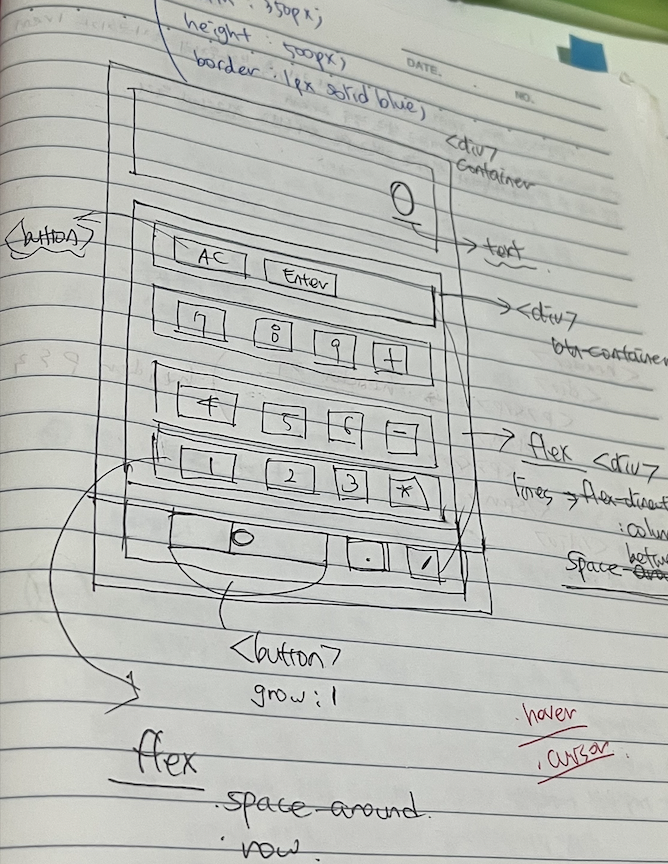 : 350px;
height : 500px;
border : 1px solid blue;
DATE.
NO.
<div>
container
0
text
<button>
AC
Enter
<div>
btn-container
7
8
9
+
4
5
6
-
flex <div>
lines → flex-direct
: colum
betwe
space-
1
2
3
*
0
.
/
<button>
grow : 1
. hover
. cursor.
flex
. space-around.
. row.